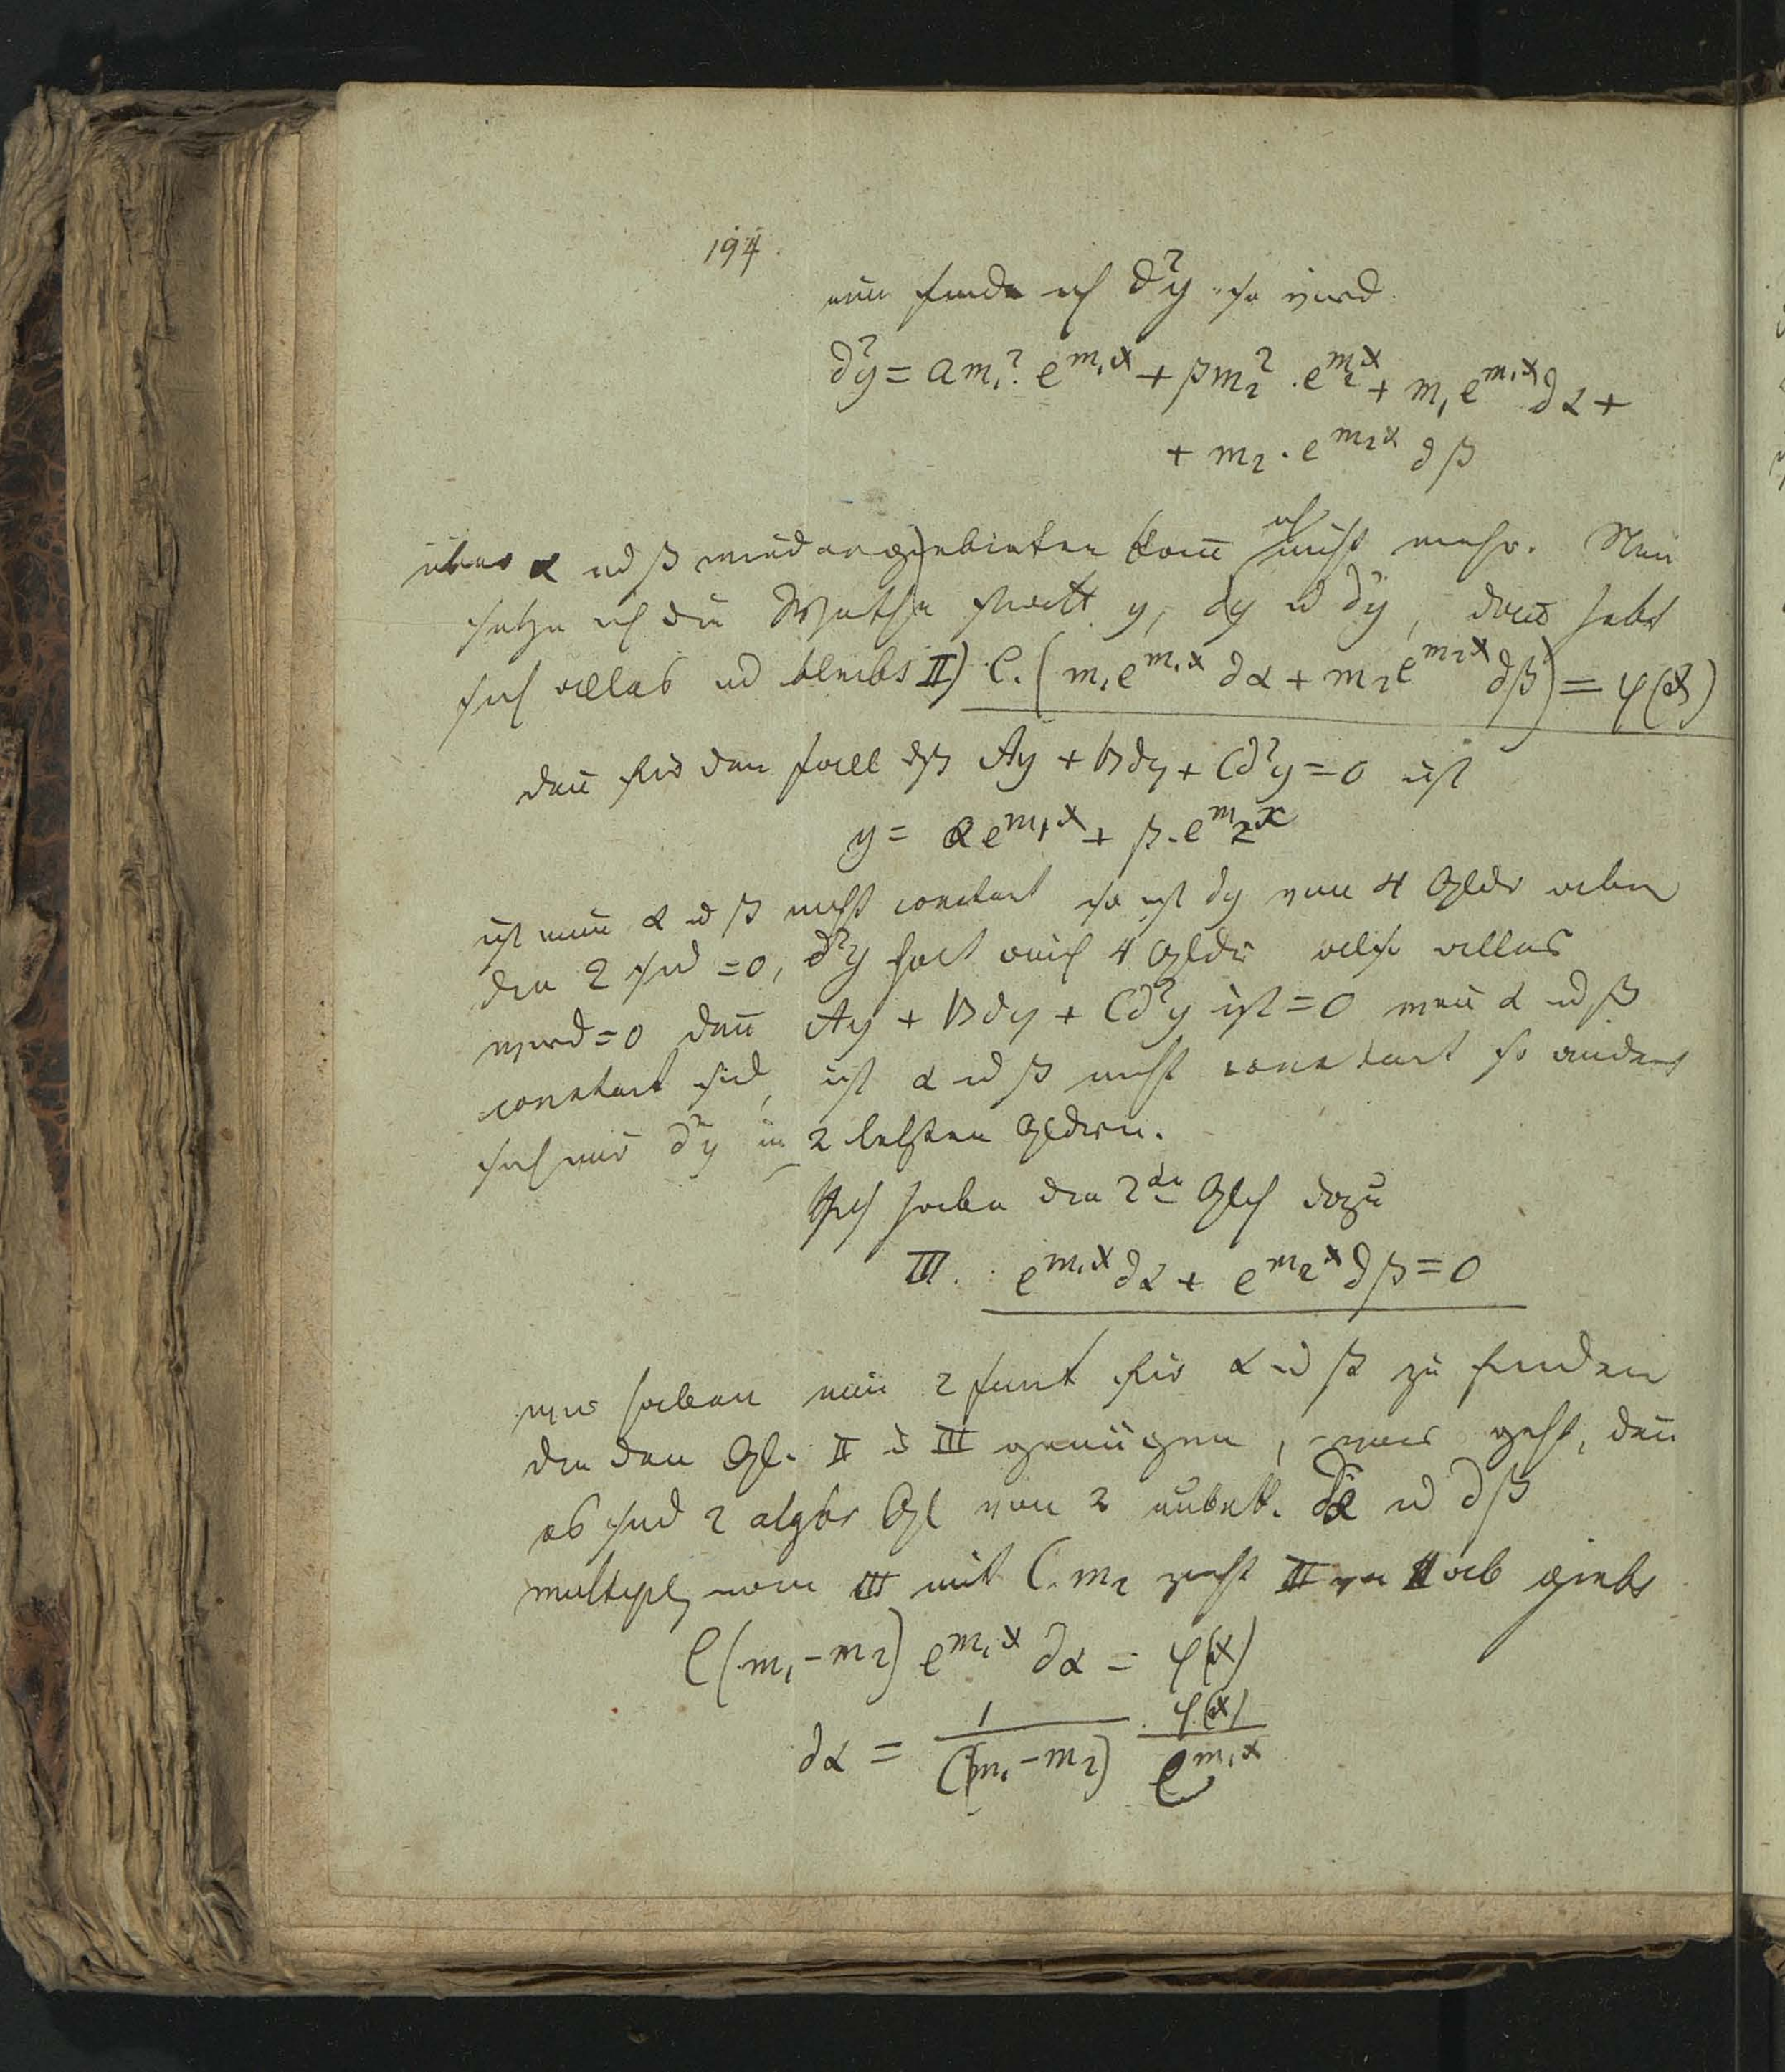 194.
nun finde ich ∂²y so wird
∂²y = αm₁². e^{m₁x} + βm₂² . e^{m₂x} + m₁ e^{m₁x} ∂α +
+ m₂ . e^{m₂x} ∂β
über α ud β weiter gebieten kann ich nicht mehr. Nun
setze ich die Werthe statt y, ∂y u ∂²y, dann hebt
sich alles ud bleibt II) C. (m₁e^{m₁x} ∂α + m₂e^{m₂x} ∂β) = φ(x)
den für den fall dß Ay + B∂y + C∂²y = 0 ist
y = αe^{m₁x} + β.e^{m₂x}
ist nun α ud β nicht constant so ist ∂y von 4 Gldr aber
die 2 sind = 0, ∂²y hat auch 4 Gldr also alles
wird = 0 den Ay + B∂y + C∂²y ist = 0 wen α ud β
constant sind, ist α ud β nicht constant so ändert
sich nur ∂²y in 2 letzten Gldern.
Ich habe die 2te Glch dazu
III. e^{m₁x} ∂α + e^{m₂x} ∂β = 0
wir haben nun 2 funct für α ud β zu finden
die den Gl. II u III genügen, was geht, den
es sind 2 algbr Gl von 2 unbek. ∂α ud ∂β
multipl man III mit C. m₂ zieht III von II ab giebt
C(m₁ - m₂) e^{m₁x} ∂α = φ(x)
∂α = \frac{1}{C(m₁ - m₂)} . \frac{φ(x)}{e^{m₁x}}